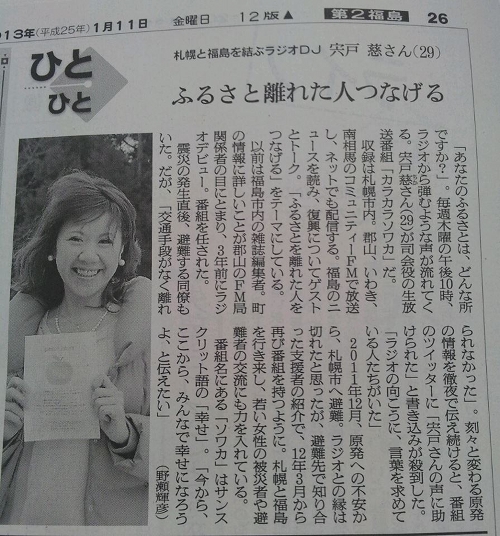 013年(平成25年)1月11日 金曜日 12版▲ 第2福島 26
ひと
ひと
札幌と福島を結ぶラジオDJ 宍戸 慈さん(29)
ふるさと離れた人つなげる
「あなたのふるさとは、どんな所
ですか？」。毎週木曜の午後10時、
ラジオから弾むような声が流れてく
る。宍戸慈さん(29)が司会役の生放
送番組「カラカラソワカ」だ。
収録は札幌市内。郡山、いわき、
南相馬のコミュニティーFMで放送
し、ネットでも配信する。福島のニ
ュースを読み、復興についてゲスト
とトーク。「ふるさとを離れた人を
つなげる」をテーマにしている。
以前は福島市内の雑誌編集者。町
の情報に詳しいことが郡山のFM局
関係者の目にとまり、3年前にラジ
オデビュー。番組を任された。
震災の発生直後、避難する同僚も
いた。だが、「交通手段がなく離れ
られなかった」。刻々と変わる原発
の情報を徹夜で伝え続けると、番組
のツイッターに「宍戸さんの声に助
けられた」と書き込みが殺到した。
「ラジオの向こうに、言葉を求めて
いる人たちがいた」
2011年12月、原発への不安か
ら、札幌市へ避難。ラジオとの縁は
切れたと思ったが、避難先で知り合
った支援者の紹介で、12年3月から
再び番組を持つように。札幌と福島
を行き来し、若い女性の被災者や避
難者の交流にも力を入れている。
番組名にある「ソワカ」はサンス
クリット語の「幸せ」。「今から、
ここから、みんなで幸せになろう
よ、と伝えたい」 (野瀬輝彦)